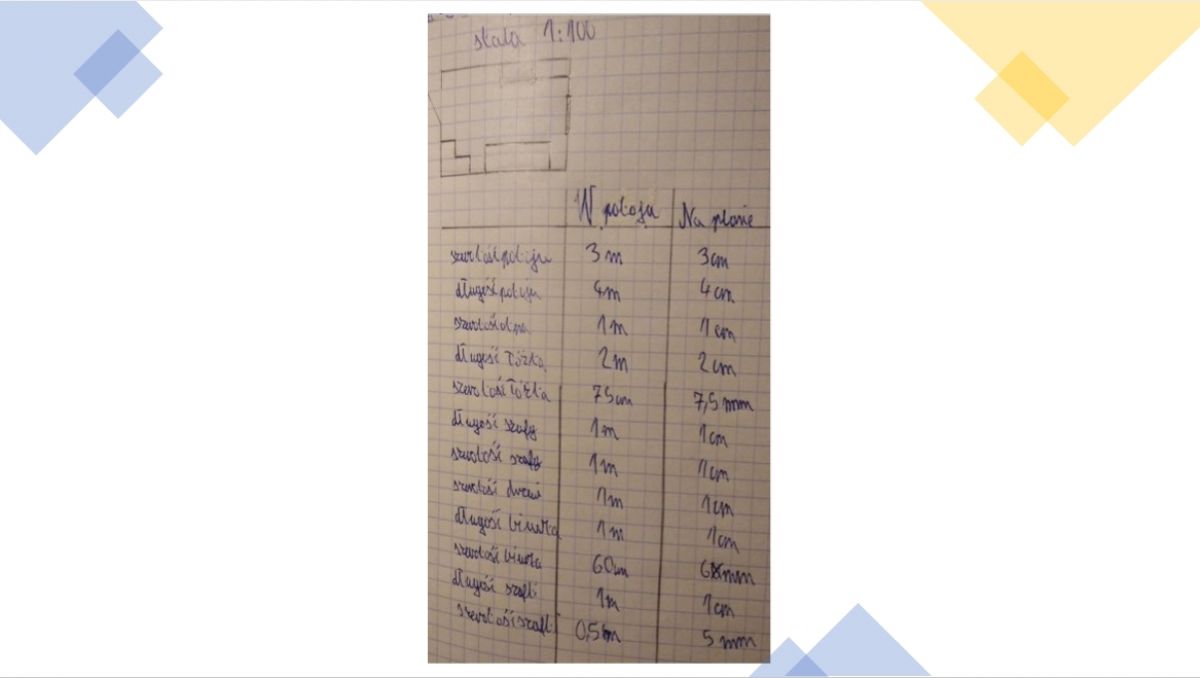 skala 1:100
W pokoju Na planie
szerokość pokoju 3m 3cm
długość pokoju 4m 4cm
szerokość okna 1m 1cm
długość łóżka 2m 2cm
szerokość łóżka 75cm 7,5mm
długość szafy 1m 1cm
szerokość szafy 1m 1cm
szerokość drzwi 1m 1cm
długość biurka 1m 1cm
szerokość biurka 60cm 6mm
długość szafki 1m 1cm
szerokość szafki 0,5m 5mm